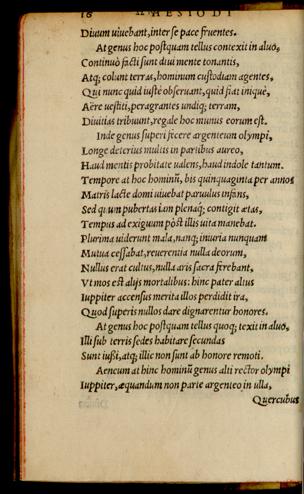 16 HESIODI
Diuum uiuebant, inter se pace fruentes.
At genus hoc postquam tellus contexit in aluo,
Continuò facti sunt diui mente tonantis,
Atq; colunt terras, hominum custodiam agentes,
Qui nunc quid iustè obseruant, quid fiat iniquè,
Aëre uestiti, peragrantes undiq; terram,
Diuitias tribuunt, regale hoc munus eorum est.
Inde genus superi fecere argenteum olympi,
Longe deterius multis in partibus aureo,
Haud mentis probitate ualens, haud indole tantum.
Tempore at hoc hominũ, bis quinquaginta per annos
Matris lacte domi uiuebat paruulus infans,
Sed quum pubertas iam plenaq; contigit ætas,
Tempus ad exiguum pòst illis uita manebat.
Plurima uiderunt mala, nanq; iniuria nunquam
Mutua cessabat, reuerentia nulla deorum,
Nullus erat cultus, nulla aris sacra ferebant,
Vt mos est alijs mortalibus: hinc pater altus
Iuppiter accensus merita illos perdidit ira,
Quod superis nullos dare dignarentur honores.
At genus hoc postquam tellus quoq; texit in aluo,
Illi sub terris sedes habitare secundas
Sunt iussi, atq; illic non sunt ab honore remoti.
Aeneum at hinc hominũ genus alti rector olympi
Iuppiter, æquandum non parte argenteo in ulla,
Quercubus